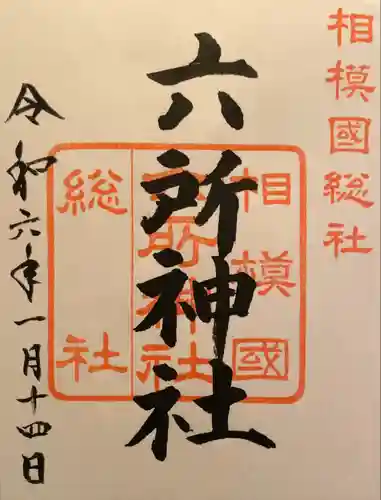 相模國総社
六所神社
相模國
六所神社
総社
令和六年一月十四日